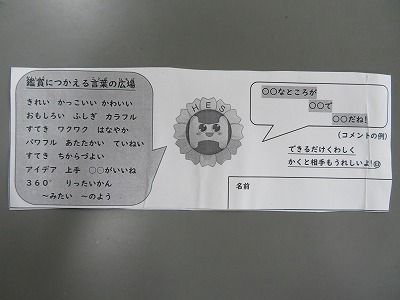 鑑賞につかえる言葉の広場
きれい かっこいい かわいい
おもしろい ふしぎ カラフル
すてき ワクワク はなやか
パワフル あたたかい ていねい
すてき ちからづよい
アイデア 上手 〇〇がいいね
360° りったいかん
～みたい ～のよう
HES
〇〇なところが
〇〇で
〇〇だね!
(コメントの例)
できるだけくわしく
かくと相手もうれしいよ!
名前